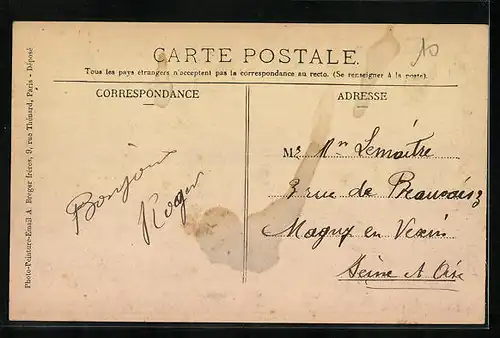 10
CARTE POSTALE.
Tous les pays étrangers n'acceptent pas la correspondance au recto. (Se renseigner à la poste).
CORRESPONDANCE
ADRESSE
Bonjour
Roger
M. Lemaitre
3 rue de Beauvais
Magny en Vexin
Seine et Oise
Photo-Peinture-Email A. Breger frères, 9, rue Thénard, Paris - Déposé